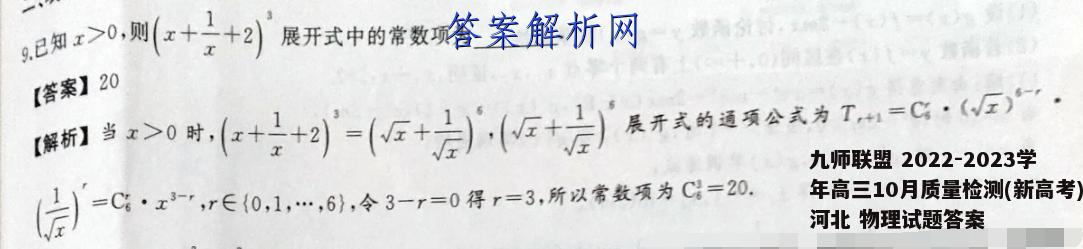 9.已知 x>0,则(x+1/x+2)³ 展开式中的常数项
答案解析网
【答案】20
【解析】当 x>0 时,(x+1/x+2)³=(√x+1/√x)⁶,(√x+1/√x)⁶ 展开式的通项公式为 Tᵣ₊₁=C₆ʳ·(√x)⁶⁻ʳ·
(1/√x)ʳ=C₆ʳ·x³⁻ʳ,r∈{0,1,…,6},令 3-r=0 得 r=3,所以常数项为 C₆³=20.
九师联盟 2022-2023学
年高三10月质量检测(新高考)
河北 物理试题答案